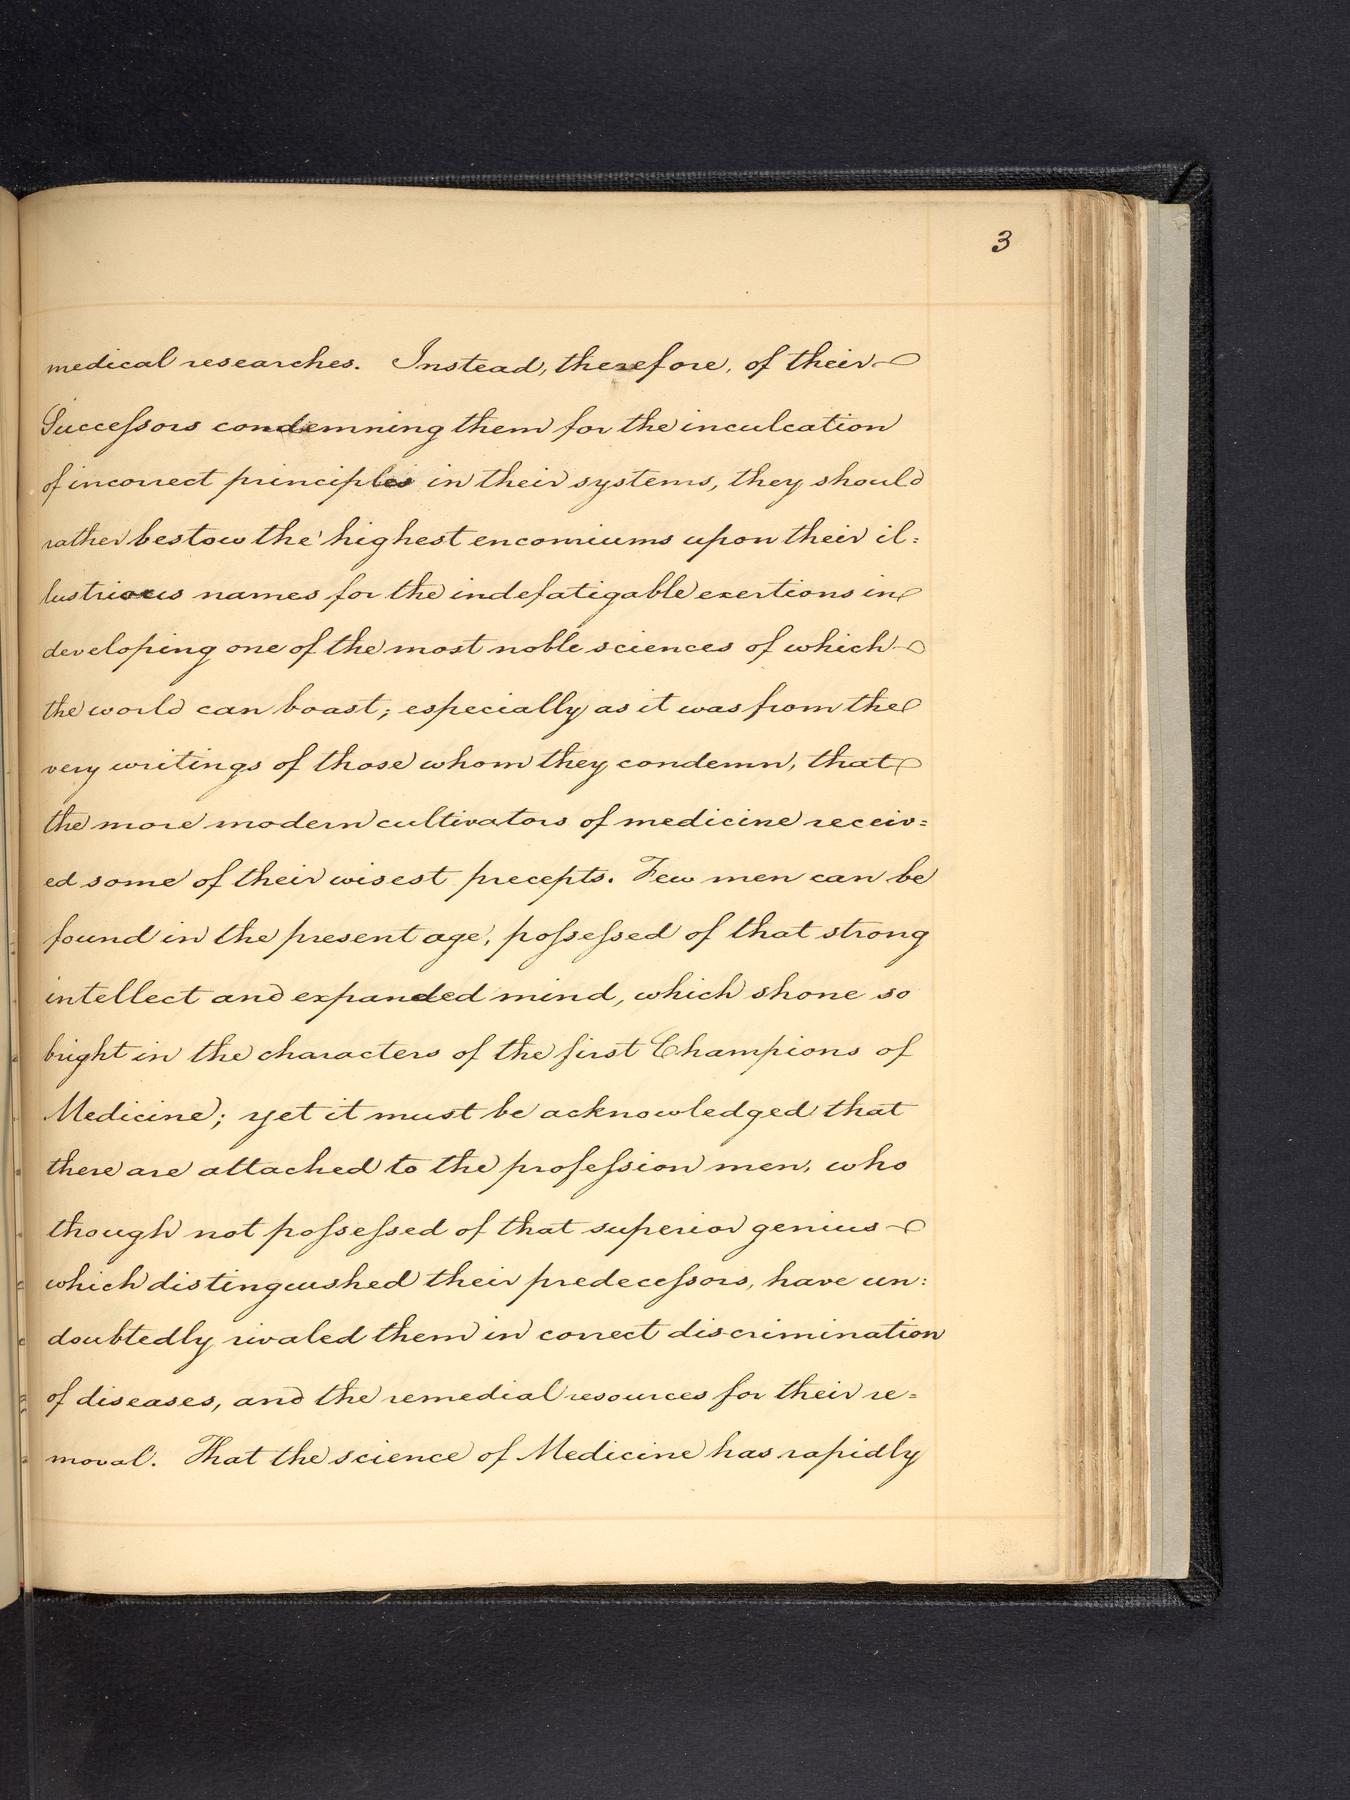 3
medical researches. Instead, therefore, of their
Successors condemning them for the inculcation
of incorrect principles in their systems, they should
rather bestow the highest encomiums upon their il=
lustrious names for the indefatigable exertions in
developing one of the most noble sciences of which
the world can boast; especially as it was from the
very writings of those whom they condemn, that
the more modern cultivators of medicine receiv=
ed some of their wisest precepts. Few men can be
found in the present age, possessed of that strong
intellect and expanded mind, which shone so
bright in the characters of the first Champions of
Medicine; yet it must be acknowledged that
there are attached to the profession men, who
though not possessed of that superior genius
which distinguished their predecessors, have un:
doubtedly rivaled them in correct discrimination
of diseases, and the remedial resources for their re=
moval. That the science of Medicine has rapidly